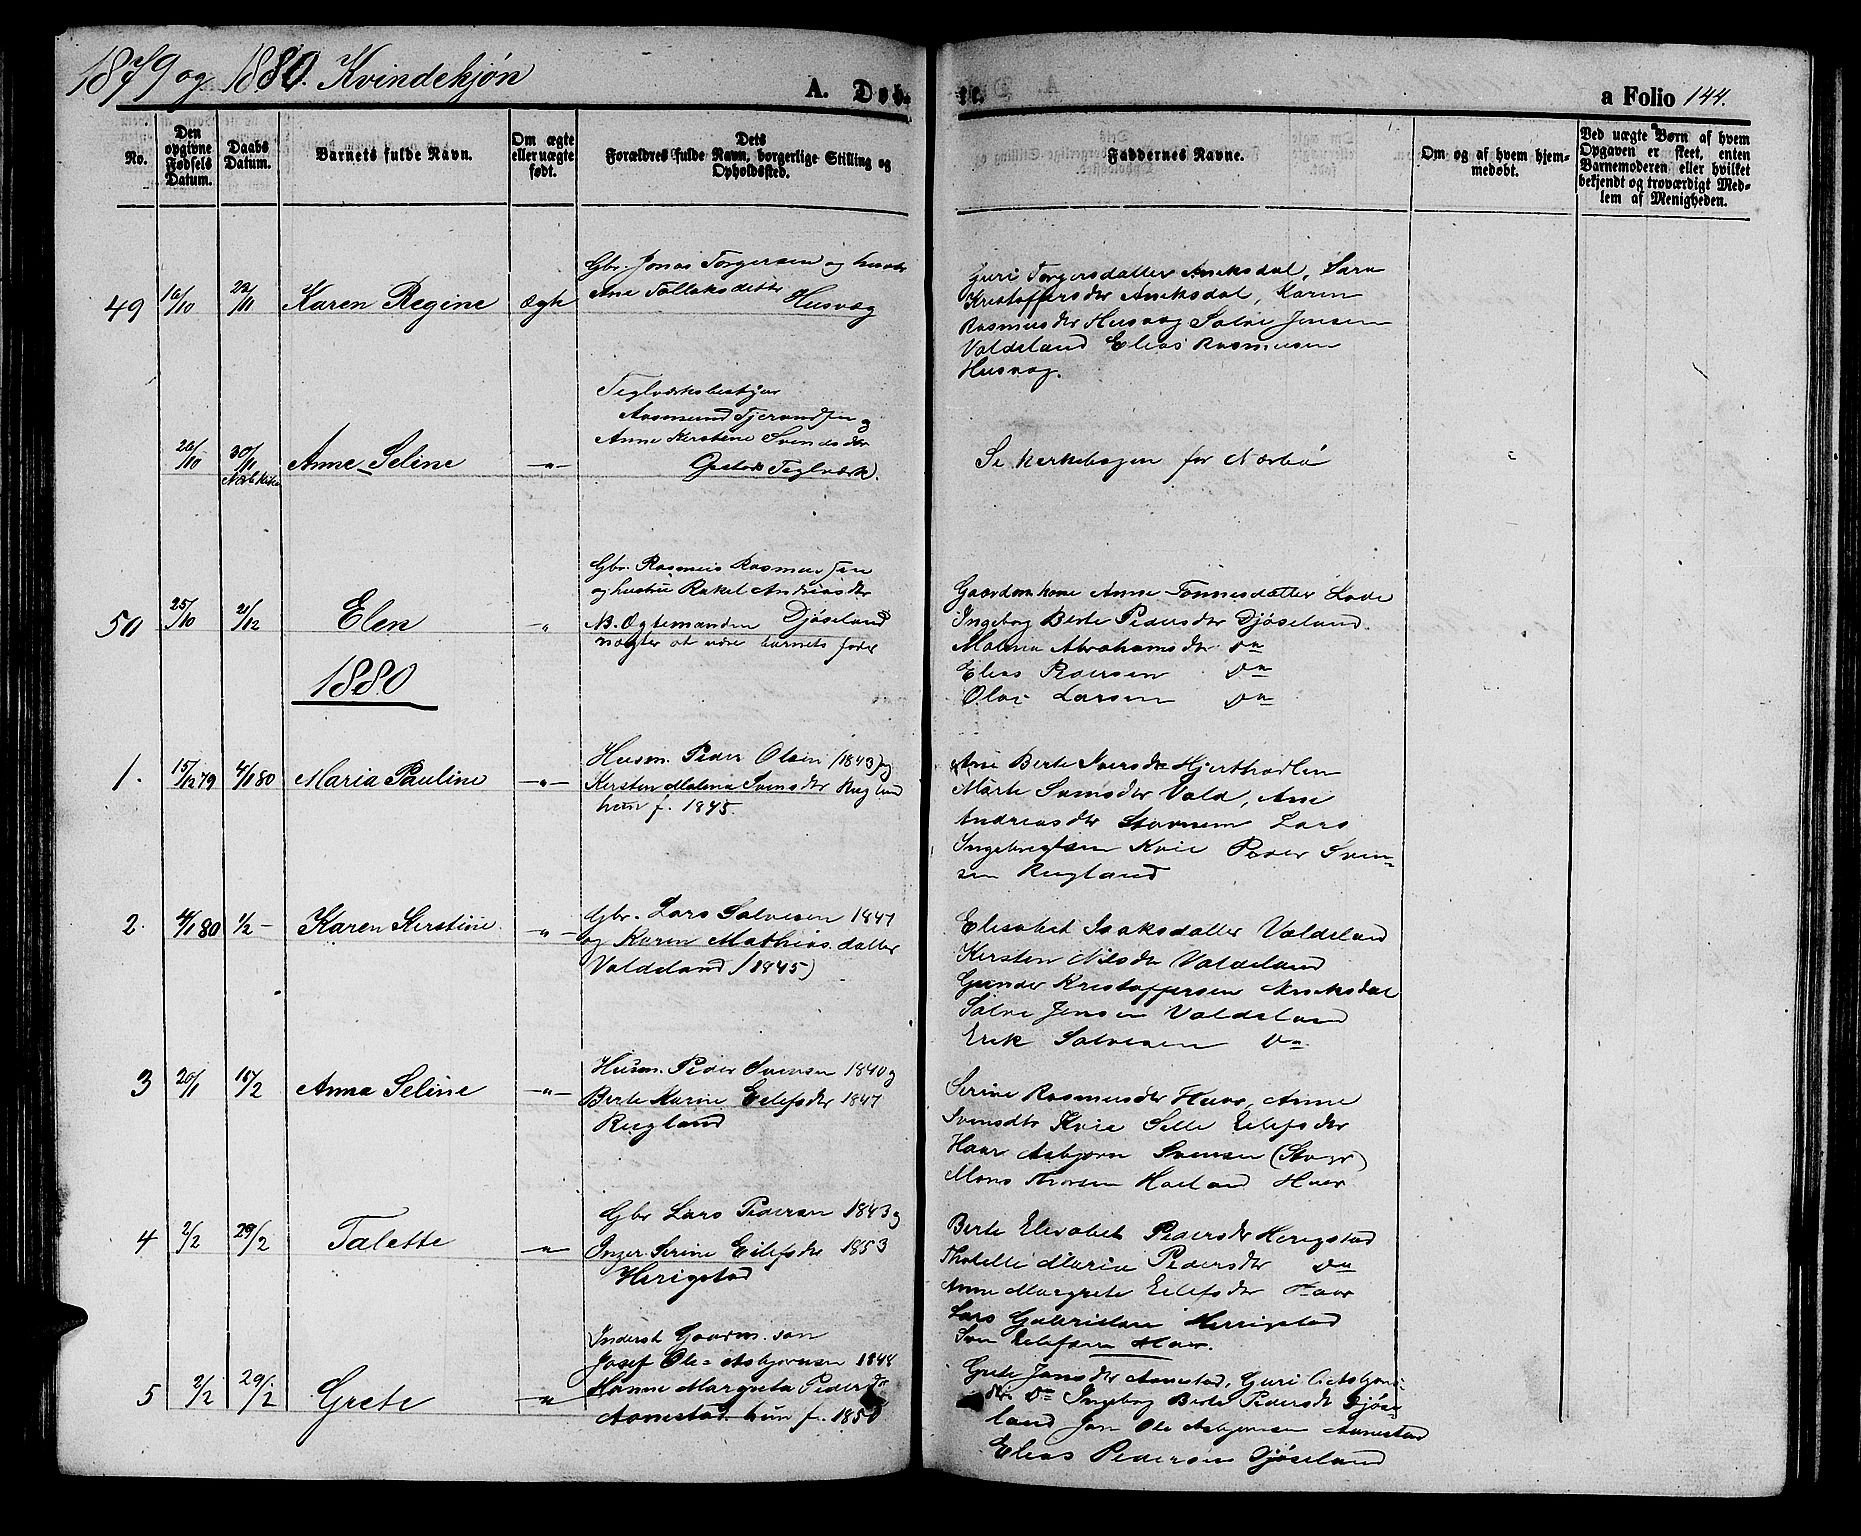 1879 og 1880. Kvindekjøn
A. Døb-
te.
a Folio 144.
No.
Den opgivne Fødsels Datum.
Daabs Datum.
Barnets fulde Navn.
Om ægte eller uægte født.
Dets Forældres fulde Navn, borgerlige Stilling og Opholdssted.
Faddernes Navne.
Om og af hvem hjemmedøbt.
Ved uægte Børn af hvem Opgaven er skeet, enten Barnemoderen eller hvilket bekjendt og troværdigt Medlem af Menigheden.
49 16/10 22/11 Karen Regine ægte
Gbr. Jonas Torgersen og hustr
Ane Tollaksdatter
Husvæg
Guri Torgersdatter Aneksdal, Sara
Kristoffersdtr Aneksdal, Karen
Rasmusdtr Husvæg Salve Jensen
Valdeland Elias Rasmusen
Husvæg.
26/10 30/11 Anne Seline -"-
Teglværksbestyr
Aasmund Tjerandsen og
Anne Kerstine Svendsdtr
Teglværk.
Se Kerkebogen for Nærbø
50 25/10 21/12 Elen "
Gbr. Rasmus Rasmussen
og hustru Rakel Andreasdtr
NB. Ægtemanden Djøseland
nægter at være barnets fader
Gaardmkone Anne Tønnesdatter Lode
Ingebog Berte Pedersdtr Djøseland.
Malena Abrahamsdtr Do
Elias Pedersen Do
Olve Larsen Do
1880
1. 15/12 79 4/1 80 Maria Pauline -"-
Husm. Peder Olsen (1843) og
Kersten Malena Svensdtr Rugland
hun f. 1845.
Ane Berte Iversdtr
Marte Svensdtr Vold, Ane
Andreasdtr Stavnem Lars
Ingebregtsen Kvie Peder Sven-
sen Rugland
2. 4/1 80 1/2 - Karen Kerstine. -"-
Gbr. Lars Salvesen 1847
og Karen Mathiasdatter
Valdeland (1845)
Elisabet Isaksdatter Valdeland
Kersten Nilsdtr Valdeland
Gunder Kristoffersen Aneksdal
Salve Jensen Valdeland
Erik Salvesen Do
3 20/1 15/2 Anna Seline -"-
Husm. Peder Svensen 1840 og
Berte Karine Eilefsdtr 1847
Rugland
Serine Rasmusdtr Haar, Anne
Svensdtr Kvie Sille Eilefsdtr
Haar Asbjørn Svensen
Mons Thorsen Haar
4 2/2 29/2 Talette "
Gbr Lars Pedersen 1843 og
Inger Serine Eilefsdtr 1853
Herigstad
Berte Elisabet Pedersdtr Herigstad
Maria Pedersdtr Do
Anne Margrete Eilefsdtr Haar
Lars Gabrielsen Herrigstad
Sven Eilefsen Haar.
5 2/2 29/2 Grete "
Inderst Gaarm. søn
Josef Ole Asbjørnsen 1848
Hanne Margreta Pedersdtr
Aanestad hun f. 1850
Grete Jonsdtr Aanestad, Guri Asbjørns-
dtr Do Ingebog Berte Pedersdtr Djøse-
land Jon Ole Asbjørnsen Aanestad
Elias Pedersen Djøseland